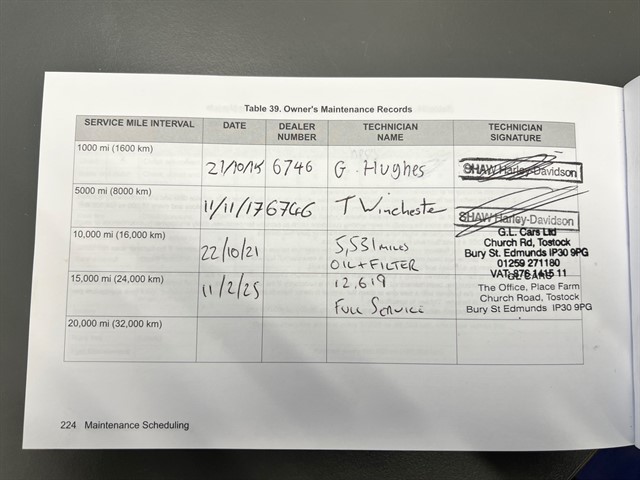 Table 39. Owner's Maintenance Records
SERVICE MILE INTERVAL DATE DEALER NUMBER TECHNICIAN NAME TECHNICIAN SIGNATURE
1000 mi (1600 km)
21/10/15 6746 G. Hughes SHAW Harley-Davidson
5000 mi (8000 km)
11/11/17 6746 T Winchester SHAW Harley-Davidson
10,000 mi (16,000 km)
22/10/21 5,531 miles
OIL + FILTER
G.L. Cars Ltd
Church Rd, Tostock
Bury St. Edmunds IP30 9PG
01259 271180
15,000 mi (24,000 km)
11/2/25 12,619
Full Service
GL CARS
The Office, Place Farm
Church Road, Tostock
Bury St Edmunds IP30 9PG
20,000 mi (32,000 km)
224 Maintenance Scheduling